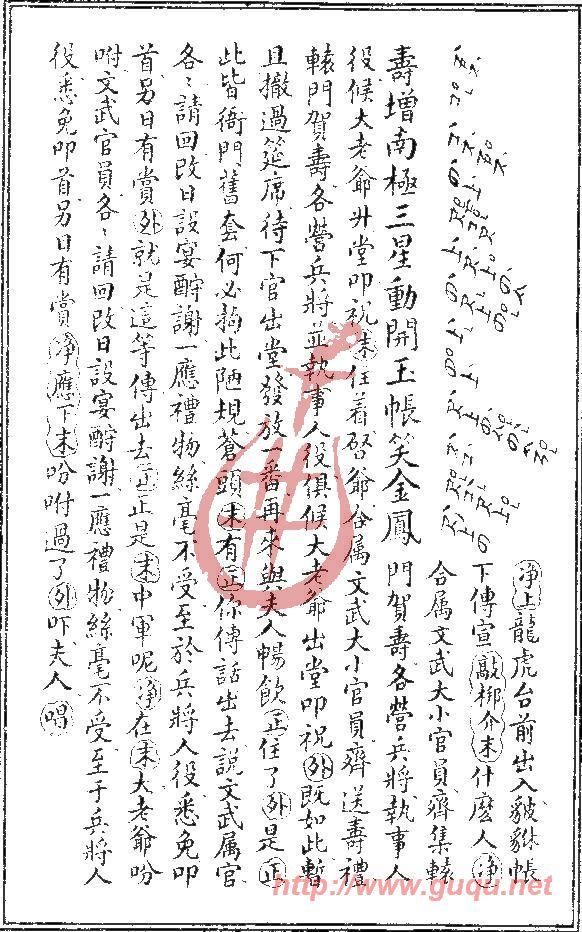 壽增南極三星動開玉帳笑金鳳
淨上龍虎台前出入貔貅帳
下傳宣敲梆介末什麽人淨
合属文武大小官員齊集轅
門賀壽各營兵將執事人
役候大老爺升堂叩祝末住着啓爺合属文武大小官員齊送壽禮
轅門賀壽各營兵將並執事人役俱候大老爺出堂叩祝外既如此暫
且撤過筵席待下官出堂發放一番再來與夫人暢飲正住了外是正
此皆衙門舊套何必拘此陋規蒼頭末有正你傳話出去說文武属官
各〻請回改日設宴酧謝一應禮物絲毫不受至於兵將人役悉免叩
首另日有賞外就是這等傳出去正正是末中軍呢淨在末大老爺吩
咐文武官員各〻請回改日設宴酧謝一應禮物絲毫不受至于兵將人
役悉免叩首另日有賞淨應下末吩咐過了外吓夫人唱
http://www.guqu.net